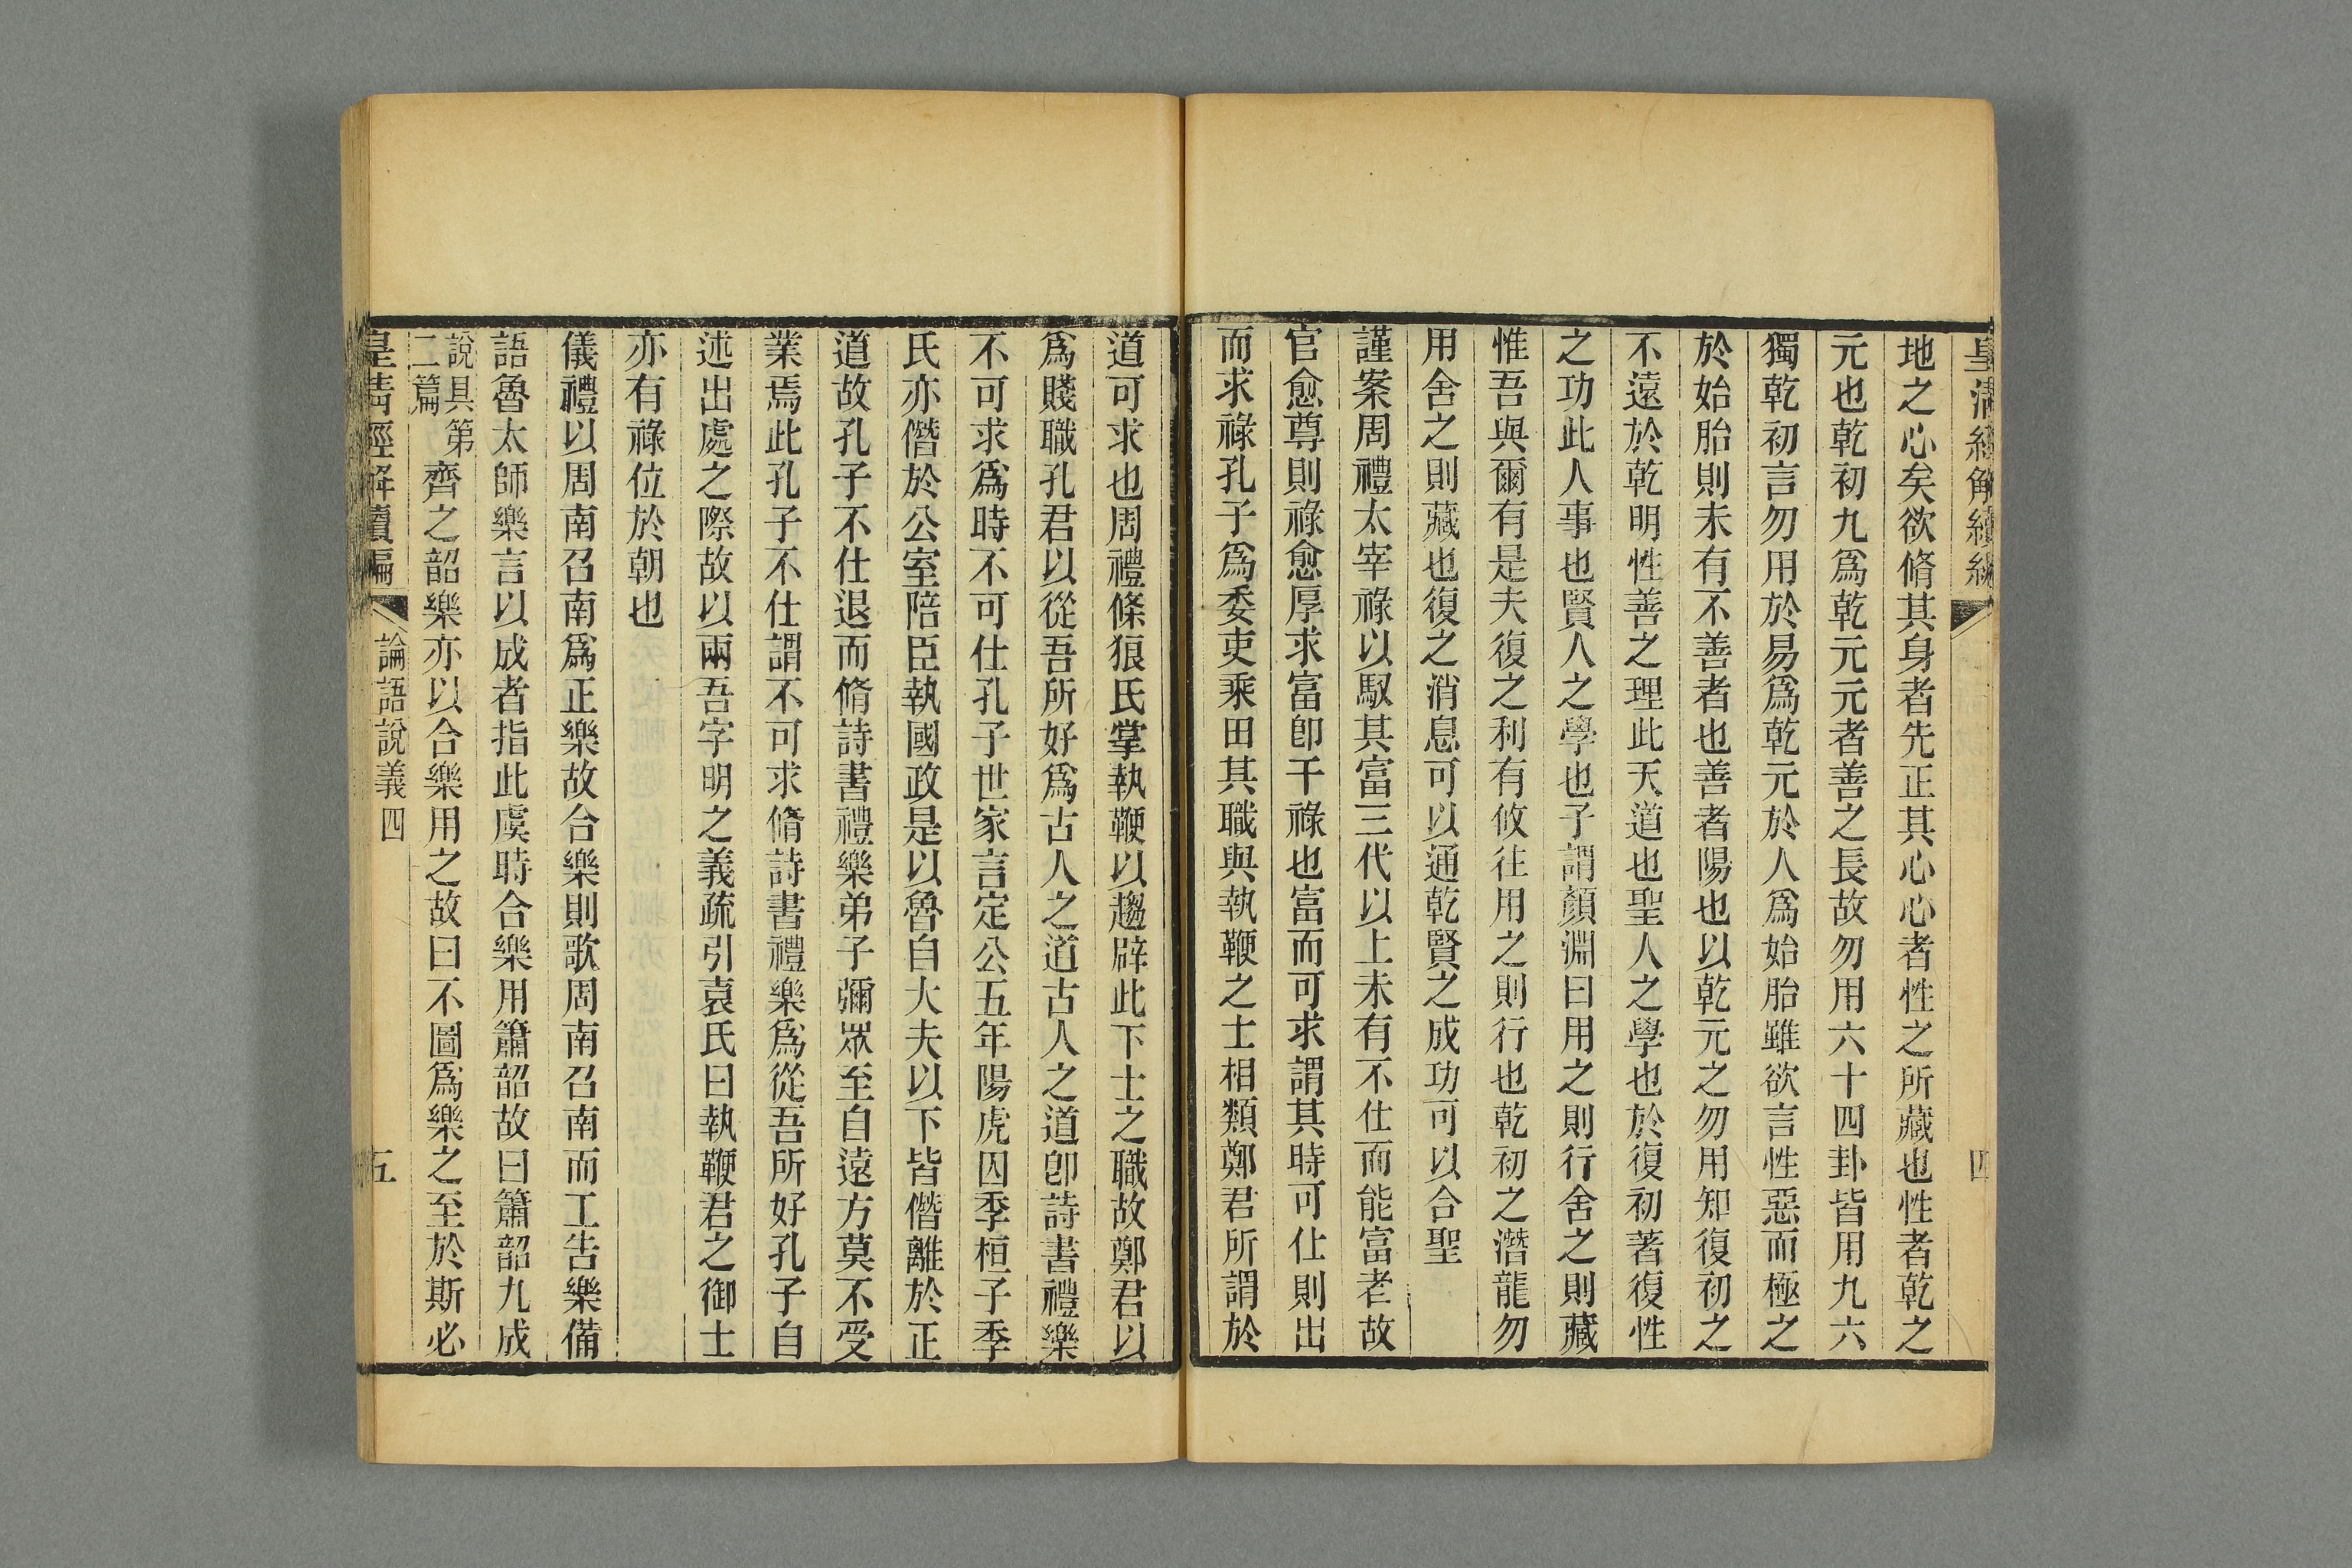 皇清經解續編 四
地之心矣欲脩其身者先正其心心者性之所藏也性者乾之
元也乾初九爲乾元元者善之長故勿用六十四卦皆用九六
獨乾初言勿用於易爲乾元於人爲始胎雖欲言性惡而極之
於始胎則未有不善者也善者陽也以乾元之勿用知復初之
不遠於乾明性善之理此天道也聖人之學也於復初著復性
之功此人事也賢人之學也子謂顏淵曰用之則行舍之則藏
惟吾與爾有是夫復之利有攸往用之則行也乾初之潛龍勿
用舍之則藏也復之消息可以通乾賢之成功可以合聖
謹案周禮太宰祿以馭其富三代以上未有不仕而能富者故
官愈尊則祿愈厚求富卽干祿也富而可求謂其時可仕則出
而求祿孔子爲委吏乘田其職與執鞭之士相類鄭君所謂於
道可求也周禮條狼氏掌執鞭以趨辟此下士之職故鄭君以
爲賤職孔君以從吾所好爲古人之道古人之道卽詩書禮樂
不可求爲時不可仕孔子世家言定公五年陽虎囚季桓子季
氏亦僭於公室陪臣執國政是以魯自大夫以下皆僭離於正
道故孔子不仕退而脩詩書禮樂弟子彌眾至自遠方莫不受
業焉此孔子不仕謂不可求脩詩書禮樂爲從吾所好孔子自
述出處之際故以兩吾字明之義疏引袁氏曰執鞭君之御士
亦有祿位於朝也
儀禮以周南召南爲正樂故合樂則歌周南召南而工告樂備
語魯太師樂言以成者指此虞時合樂用簫韶故曰簫韶九成
說具第二篇齊之韶樂亦以合樂用之故曰不圖爲樂之至於斯必
皇清經解續編 論語說義四 五